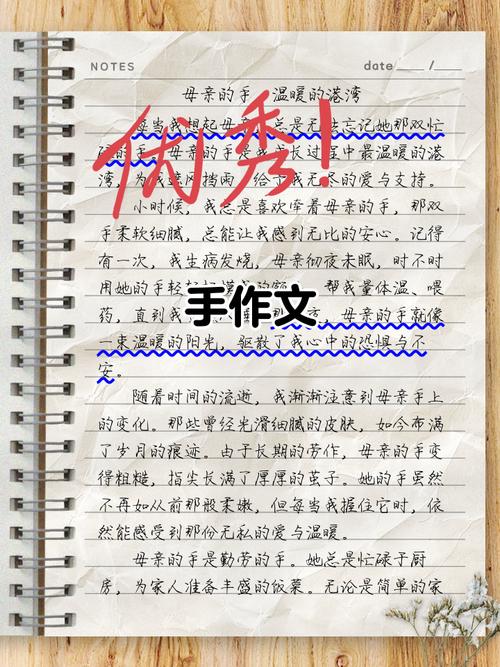 NOTES
date ___ /__
母亲的手 温暖的港湾
优秀！
每当我想起母亲 总是无法忘记她那双忙
碌的手 母亲的手是我成长过程中最温暖的港
湾，为我遮风挡雨，给予我无尽的爱与支持。
小时候，我总是喜欢牵着母亲的手，那双
手柔软细腻，总能让我感到无比的安心。记得
有一次，我生病发烧，母亲彻夜未眠，时不时
用她的手轻轻 我的额 帮我量体温、喂
手作文
药，直到我 母亲的手就像
一束温暖的阳光，驱散了我心中的恐惧与不
安。
随着时间的流逝，我渐渐注意到母亲手上
的变化。那些曾经光滑细腻的皮肤，如今布满
了岁月的痕迹。由于长期的劳作，母亲的手变
得粗糙，指尖长满了厚厚的茧子。她的手虽然
不再如从前那般柔嫩，但每当我握住它时，依
然能感受到那份无私的爱与温暖。
母亲的手是勤劳的手。她总是忙碌于厨
房，为家人准备丰盛的饭菜。无论是简单的家